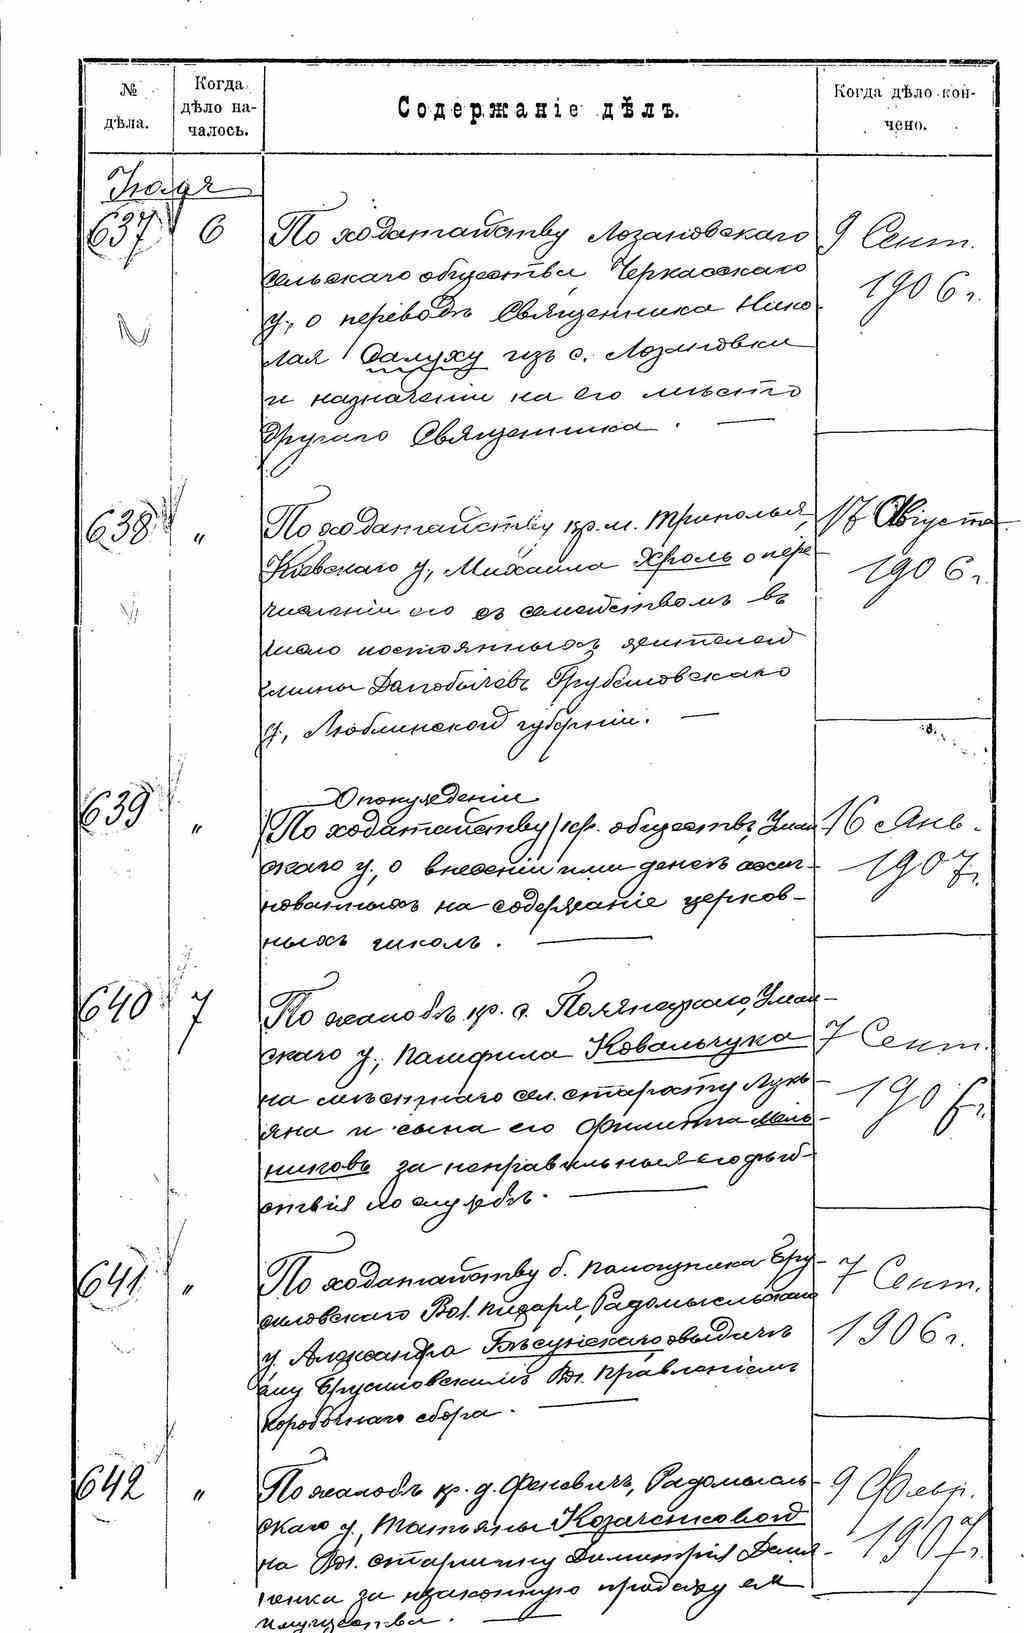 № дѣла.
Когда дѣло началось.
Содержаніе дѣлъ.
Когда дѣло кончено.
Іюля
637 6 По ходатайству Лозановскаго 9 Сент.
сельскаго общества Черкасскаго 1906 г.
у., о переводѣ Священника Нико-
лая Салуху изъ с. Лозановки
и назначеніи на его мѣсто
другаго Священника. —
638 " По ходатайству кр. м. Триполья, 17 Августа
Кіевскаго у., Михаила Хроль о пере- 1906 г.
численіи его съ семействомъ въ
число постоянныхъ жителей
гмины Грубешовскаго
у., Люблинской губерніи. —
О понужденіи
639 " (По ходатайству) кр. обществъ, Уман- 16 Янв.
скаго у., о внесеніи ими денегъ ассиг- 1907 г.
нованныхъ на содержаніе церков-
ныхъ школъ. —
640 7 По жалобѣ кр. с. Уман-
скаго у., Памфила Ковальчука 7 Сент.
на мѣстнаго сел. старосту Лукь- 190 г.
яна и сына его Филиппа Мель-
никовъ за неправильныя его дѣй-
ствія по службѣ. —
641 " По ходатайству б. помощника Бру- 7 Сент.
силовскаго Вол. писаря, Радомысльскаго 1906 г.
у. Александра о выдачѣ
ему Брусиловскимъ Вол. Правленіемъ
коробочнаго сбора. —
642 " По жалобѣ кр. д. Феневичъ, Радомысль- 9 Февр.
скаго у., Татьяны Козаченковой 1907 г.
на Вол. старшину Димитрія Демя-
ненка за незаконную продажу ея
имущества. —